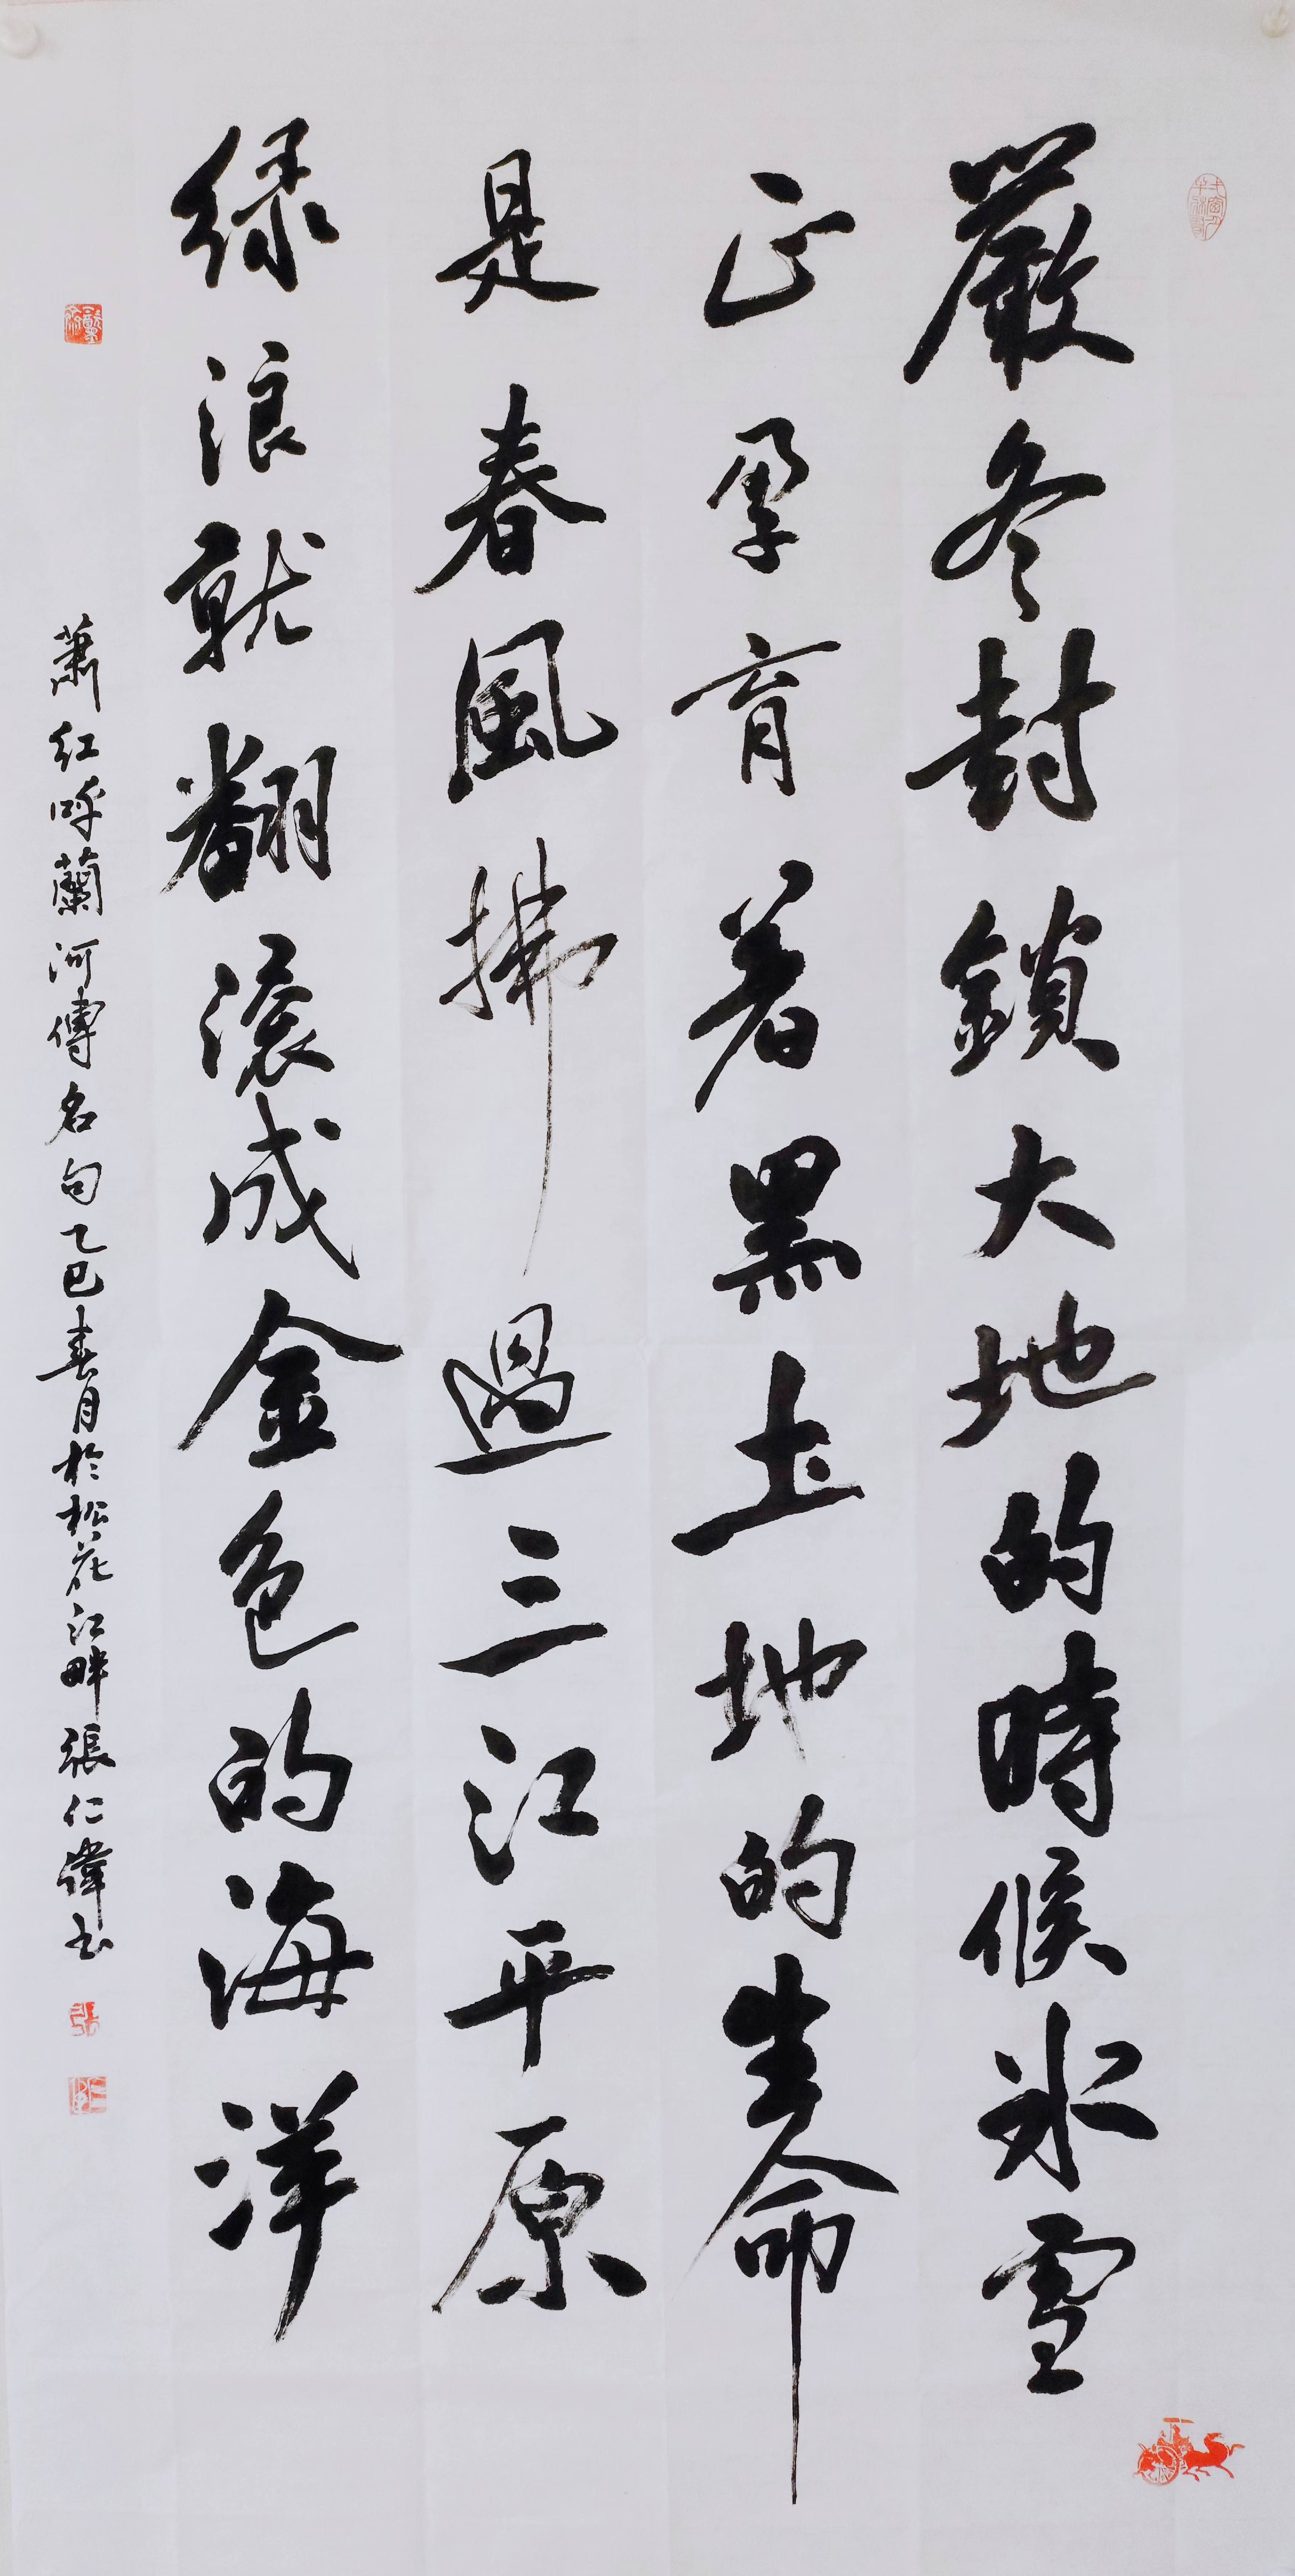 嚴冬封鎖大地的時候冰雪
正孕育着黑土地的生命
是春風拂過三江平原
緑浪就翻滚成金色的海洋
蕭紅呼蘭河傳名句乙巳春月於松花江畔張仁偉书